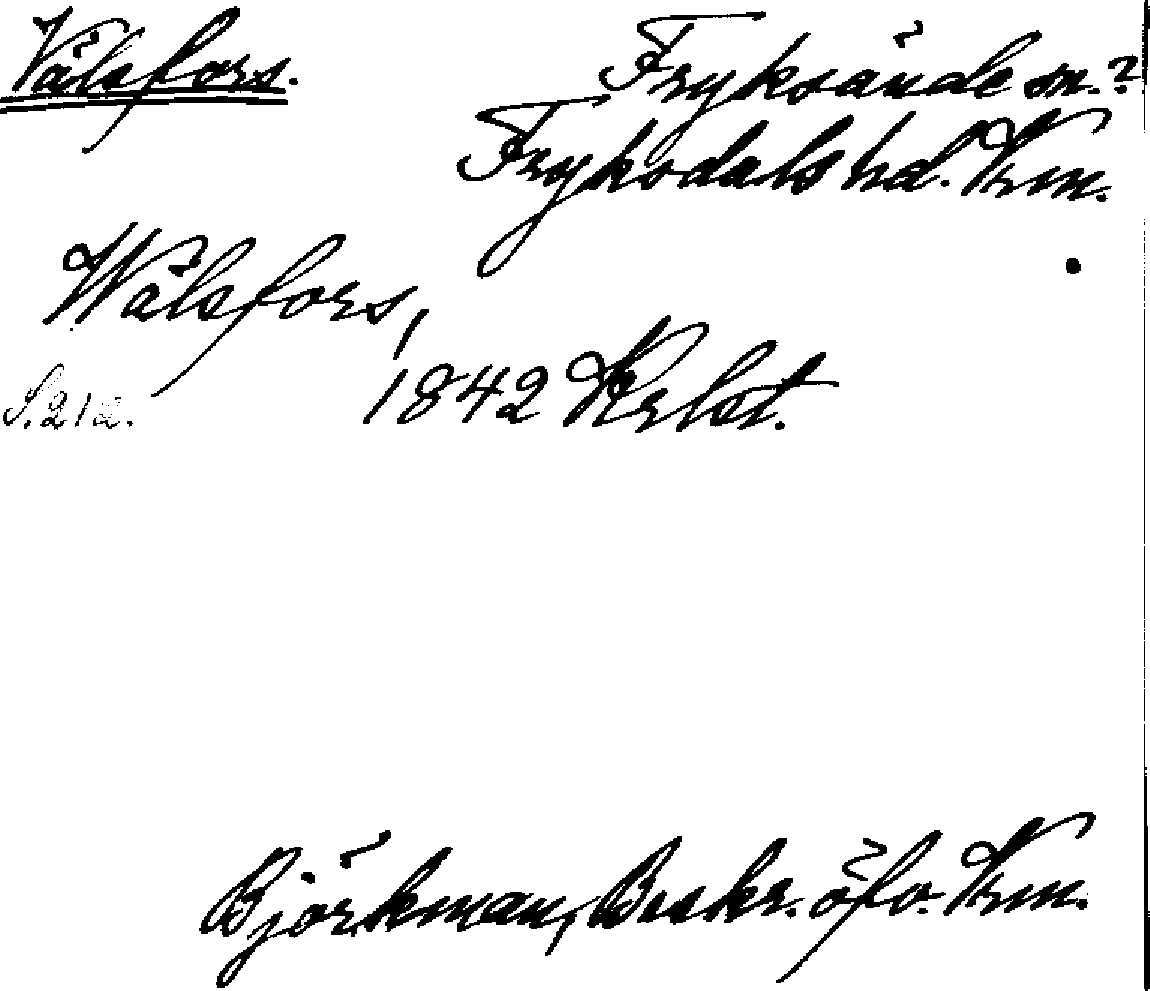 Välsfors.
Fryksände sn.?
Fryksdals hd. Vrm.
Wälsfors,
S. 212.
1842 Krlst.
Björkman, Beskr. öfv. Vrm.